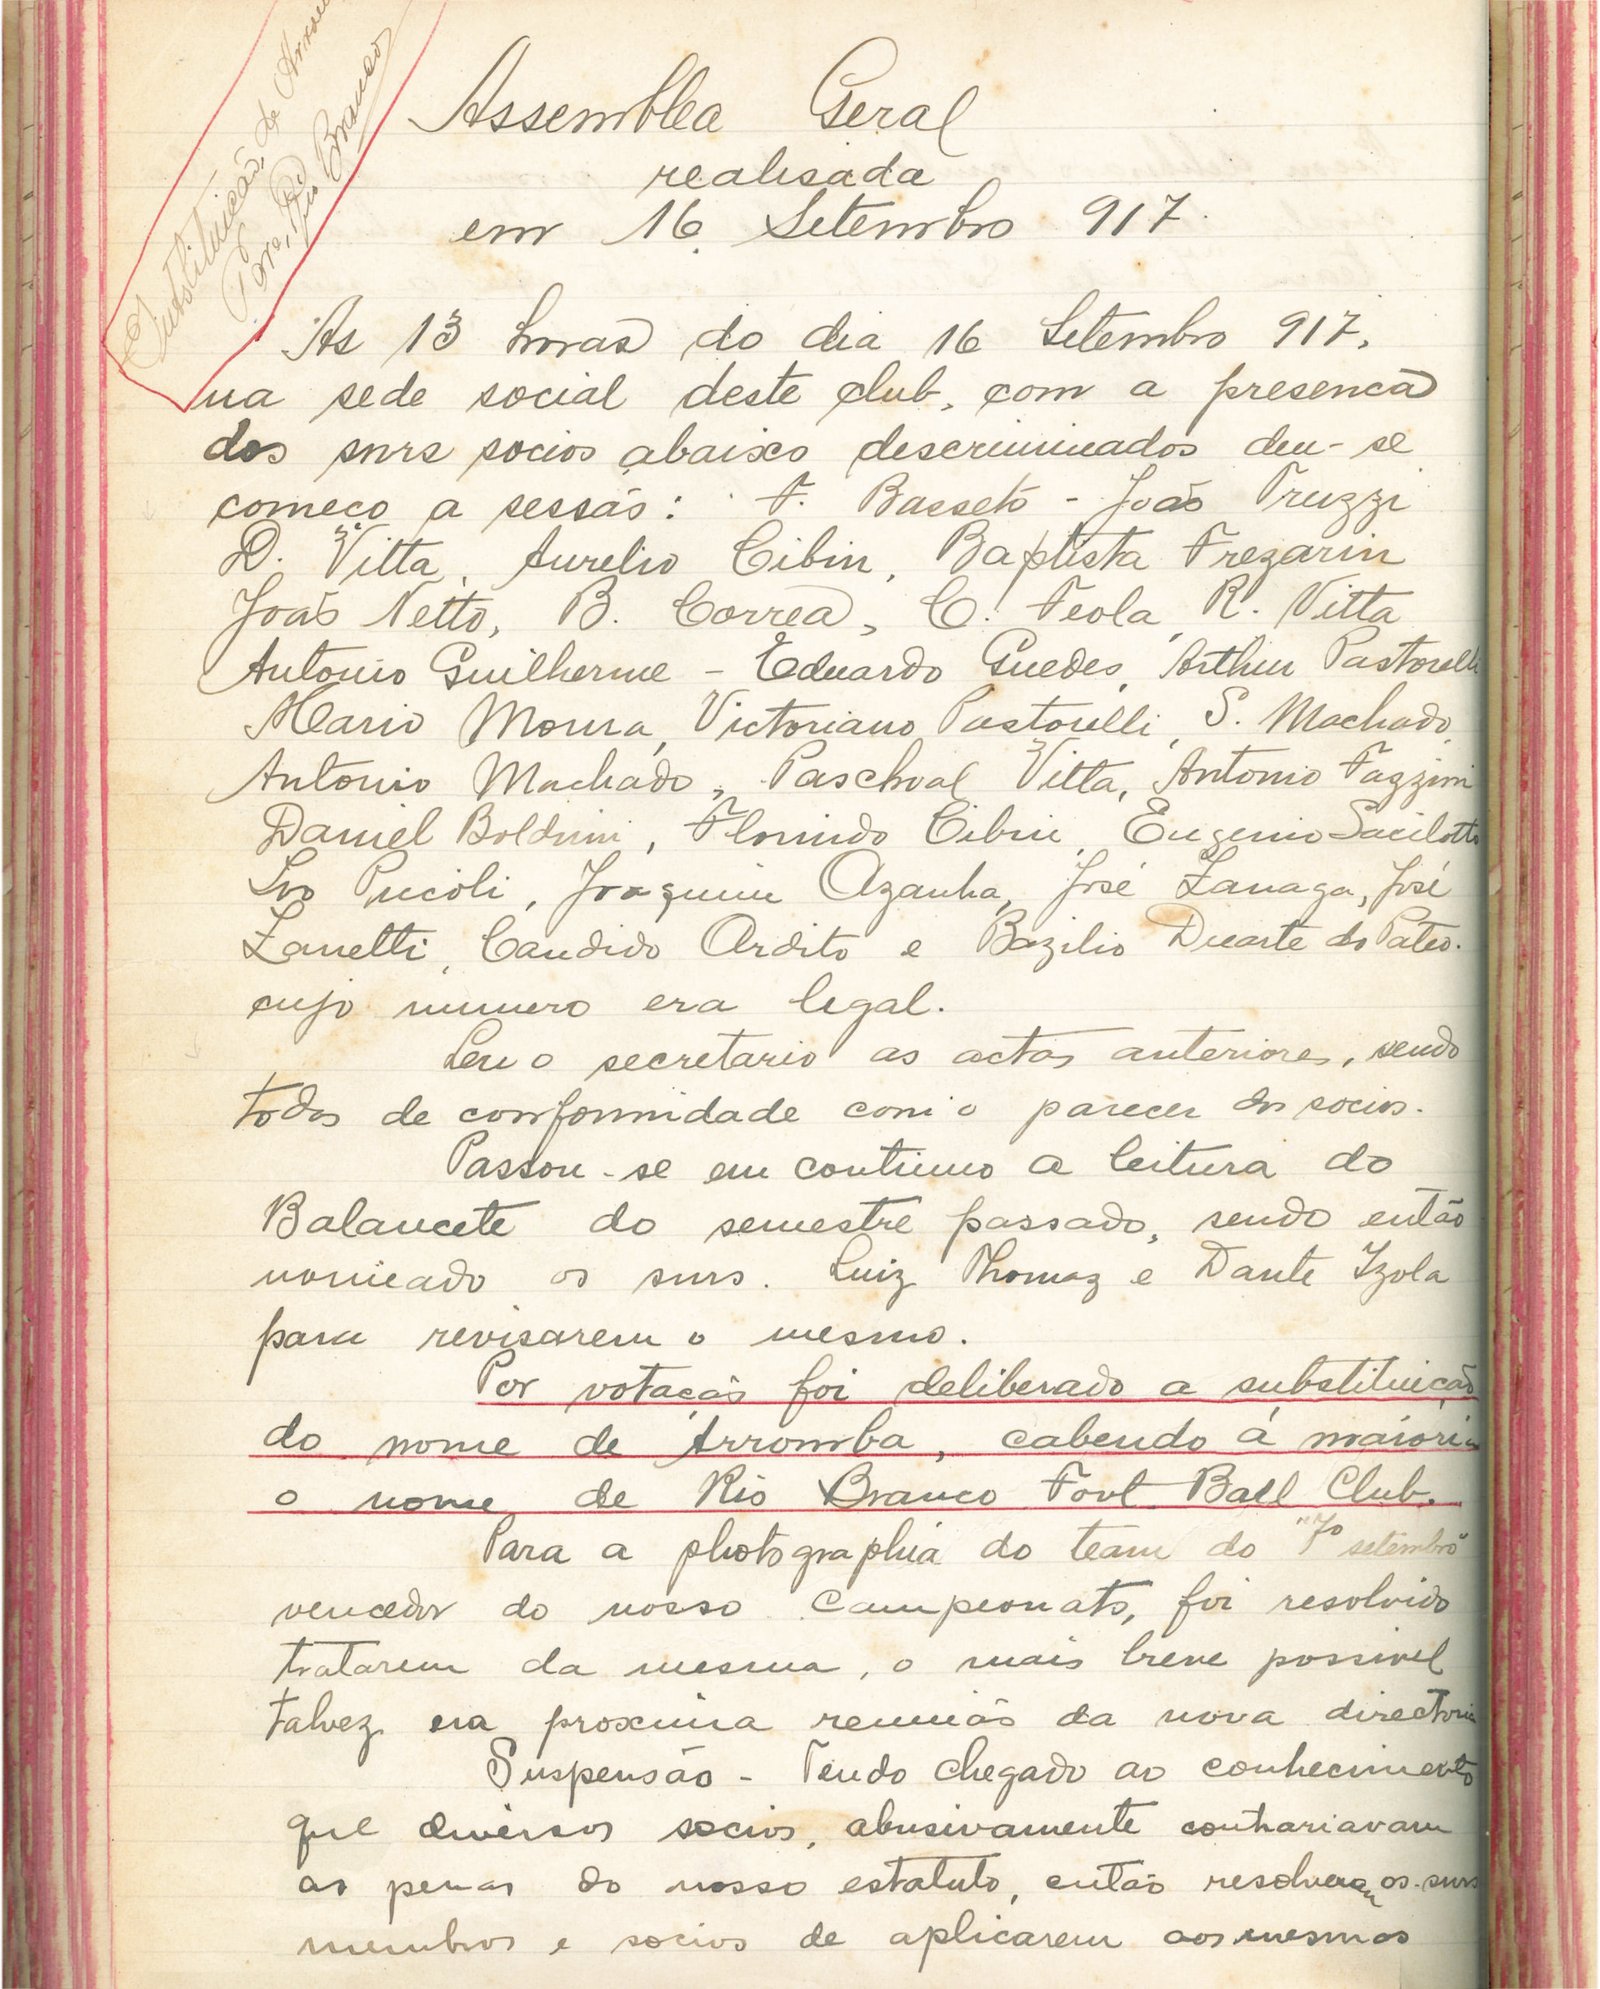 Substituição, de
Para, Rio Branco
Assemblea Geral
realisada
em 16 Setembro 917.
As 13 horas do dia 16 Setembro 917,
na sede social deste club, com a presenca
dos snrs socios abaixo descriminados deu-se
começo a sessão: F. Basseto - João Truzzi
D. Vitta, Aurelio Cibin, Baptista Frezarin
João Netto, B. Correa, C. Feola, R. Vitta
Antonio Guilherme - Eduardo Guedes, Arthur Pastorelli
Mario Moura, Victoriano Pastorelli, S. Machado,
Antonio Machado, Paschoal Vitta, Antonio Fazzini
Daniel Boldrini, Florindo Cibin, Eugenio Sacilotto
Ivo Pucóli, Joaquim Azanha, José Zanaga, José
Zanetti, Candido Ardito e Bazilio Duarte do Pateo.
cujo numero era legal.
Leu o secretario as actas anteriores, sendo
todos de conformidade com o parecer dos socios.
Passou-se em continuo a leitura do
Balancete do semestre passado, sendo então
nomeado os snrs. Luiz Thomaz e Dante Izola
para revisarem o mesmo.
Por votação foi deliberado a substituição
do nome de Arromba, cabendo á maioria
o nome de Rio Branco Foot Ball Club.
Para a photographia do team do "7º setembro"
vencedor do nosso campeonato, foi resolvido
tratarem da mesma, o mais breve possivel
talvez na proxima reunião da nova directoria
Suspensão - Tendo chegado ao conhecimento
que diversos socios, abusivamente contrariavam
as penas do nosso estatuto, então resolveram os snrs
membros e socios de aplicarem aos mesmos